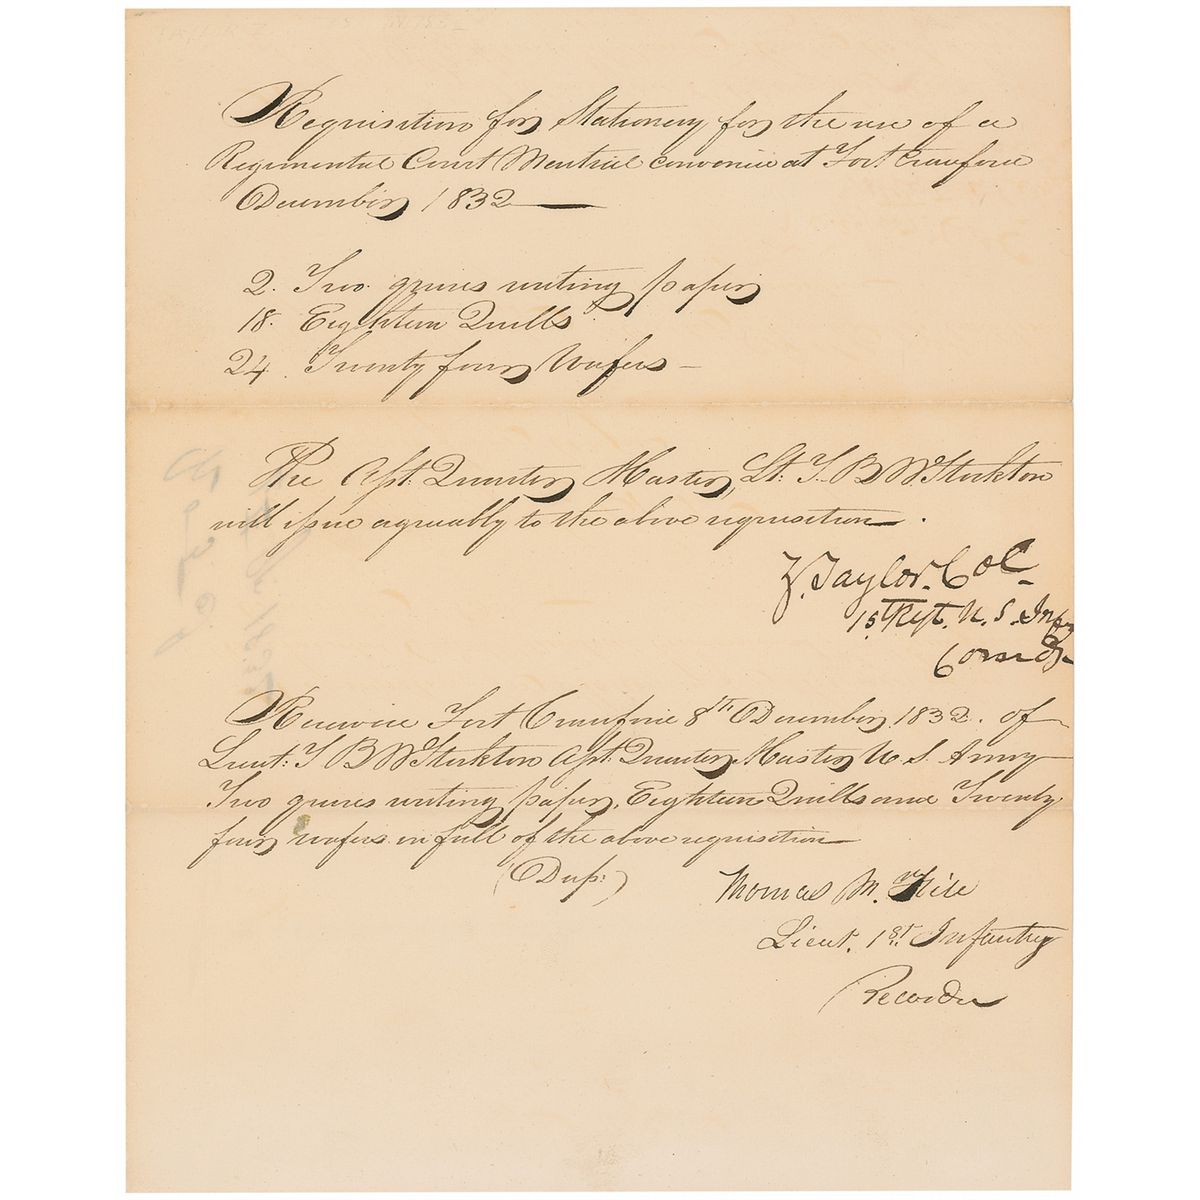 Requisition for Stationery for the use of a
Regimental Court Martial convened at Fort Crawford
December 1832
2. Two quires writing paper
18. Eighteen Quills
24. Twenty four Wafers
The Asst. Quarter Master, Lt. T. B. W. Stockton
will issue agreeably to the above requisition.
Z. Taylor. Col.
1st Regt. U. S. Infy
Comdg
Received Fort Crawford 8th December 1832. of
Lieut: T B W Stockton Asst. Quarter Master U. S. Army
Two quires writing paper, Eighteen Quills and Twenty
four wafers in full of the above requisition
(Dup:)
Thomas M.
Lieut. 1st. Infantry
Recorder